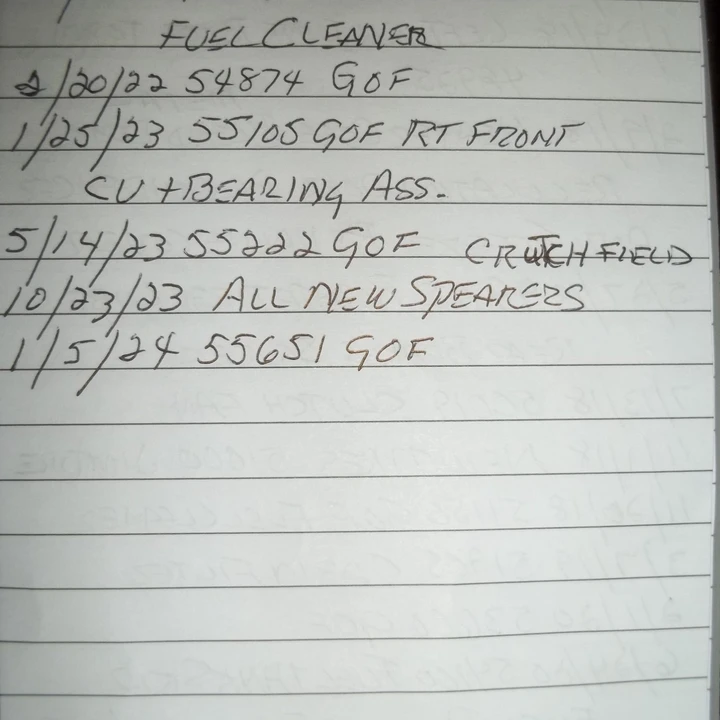 FUEL CLEANER
2/20/22 54874 GOF
1/25/23 55105 GOF RT FRONT
CV + BEARING ASS.
5/14/23 55222 GOF CRUTCHFIELD
10/23/23 ALL NEW SPEAKERS
1/5/24 55651 GOF